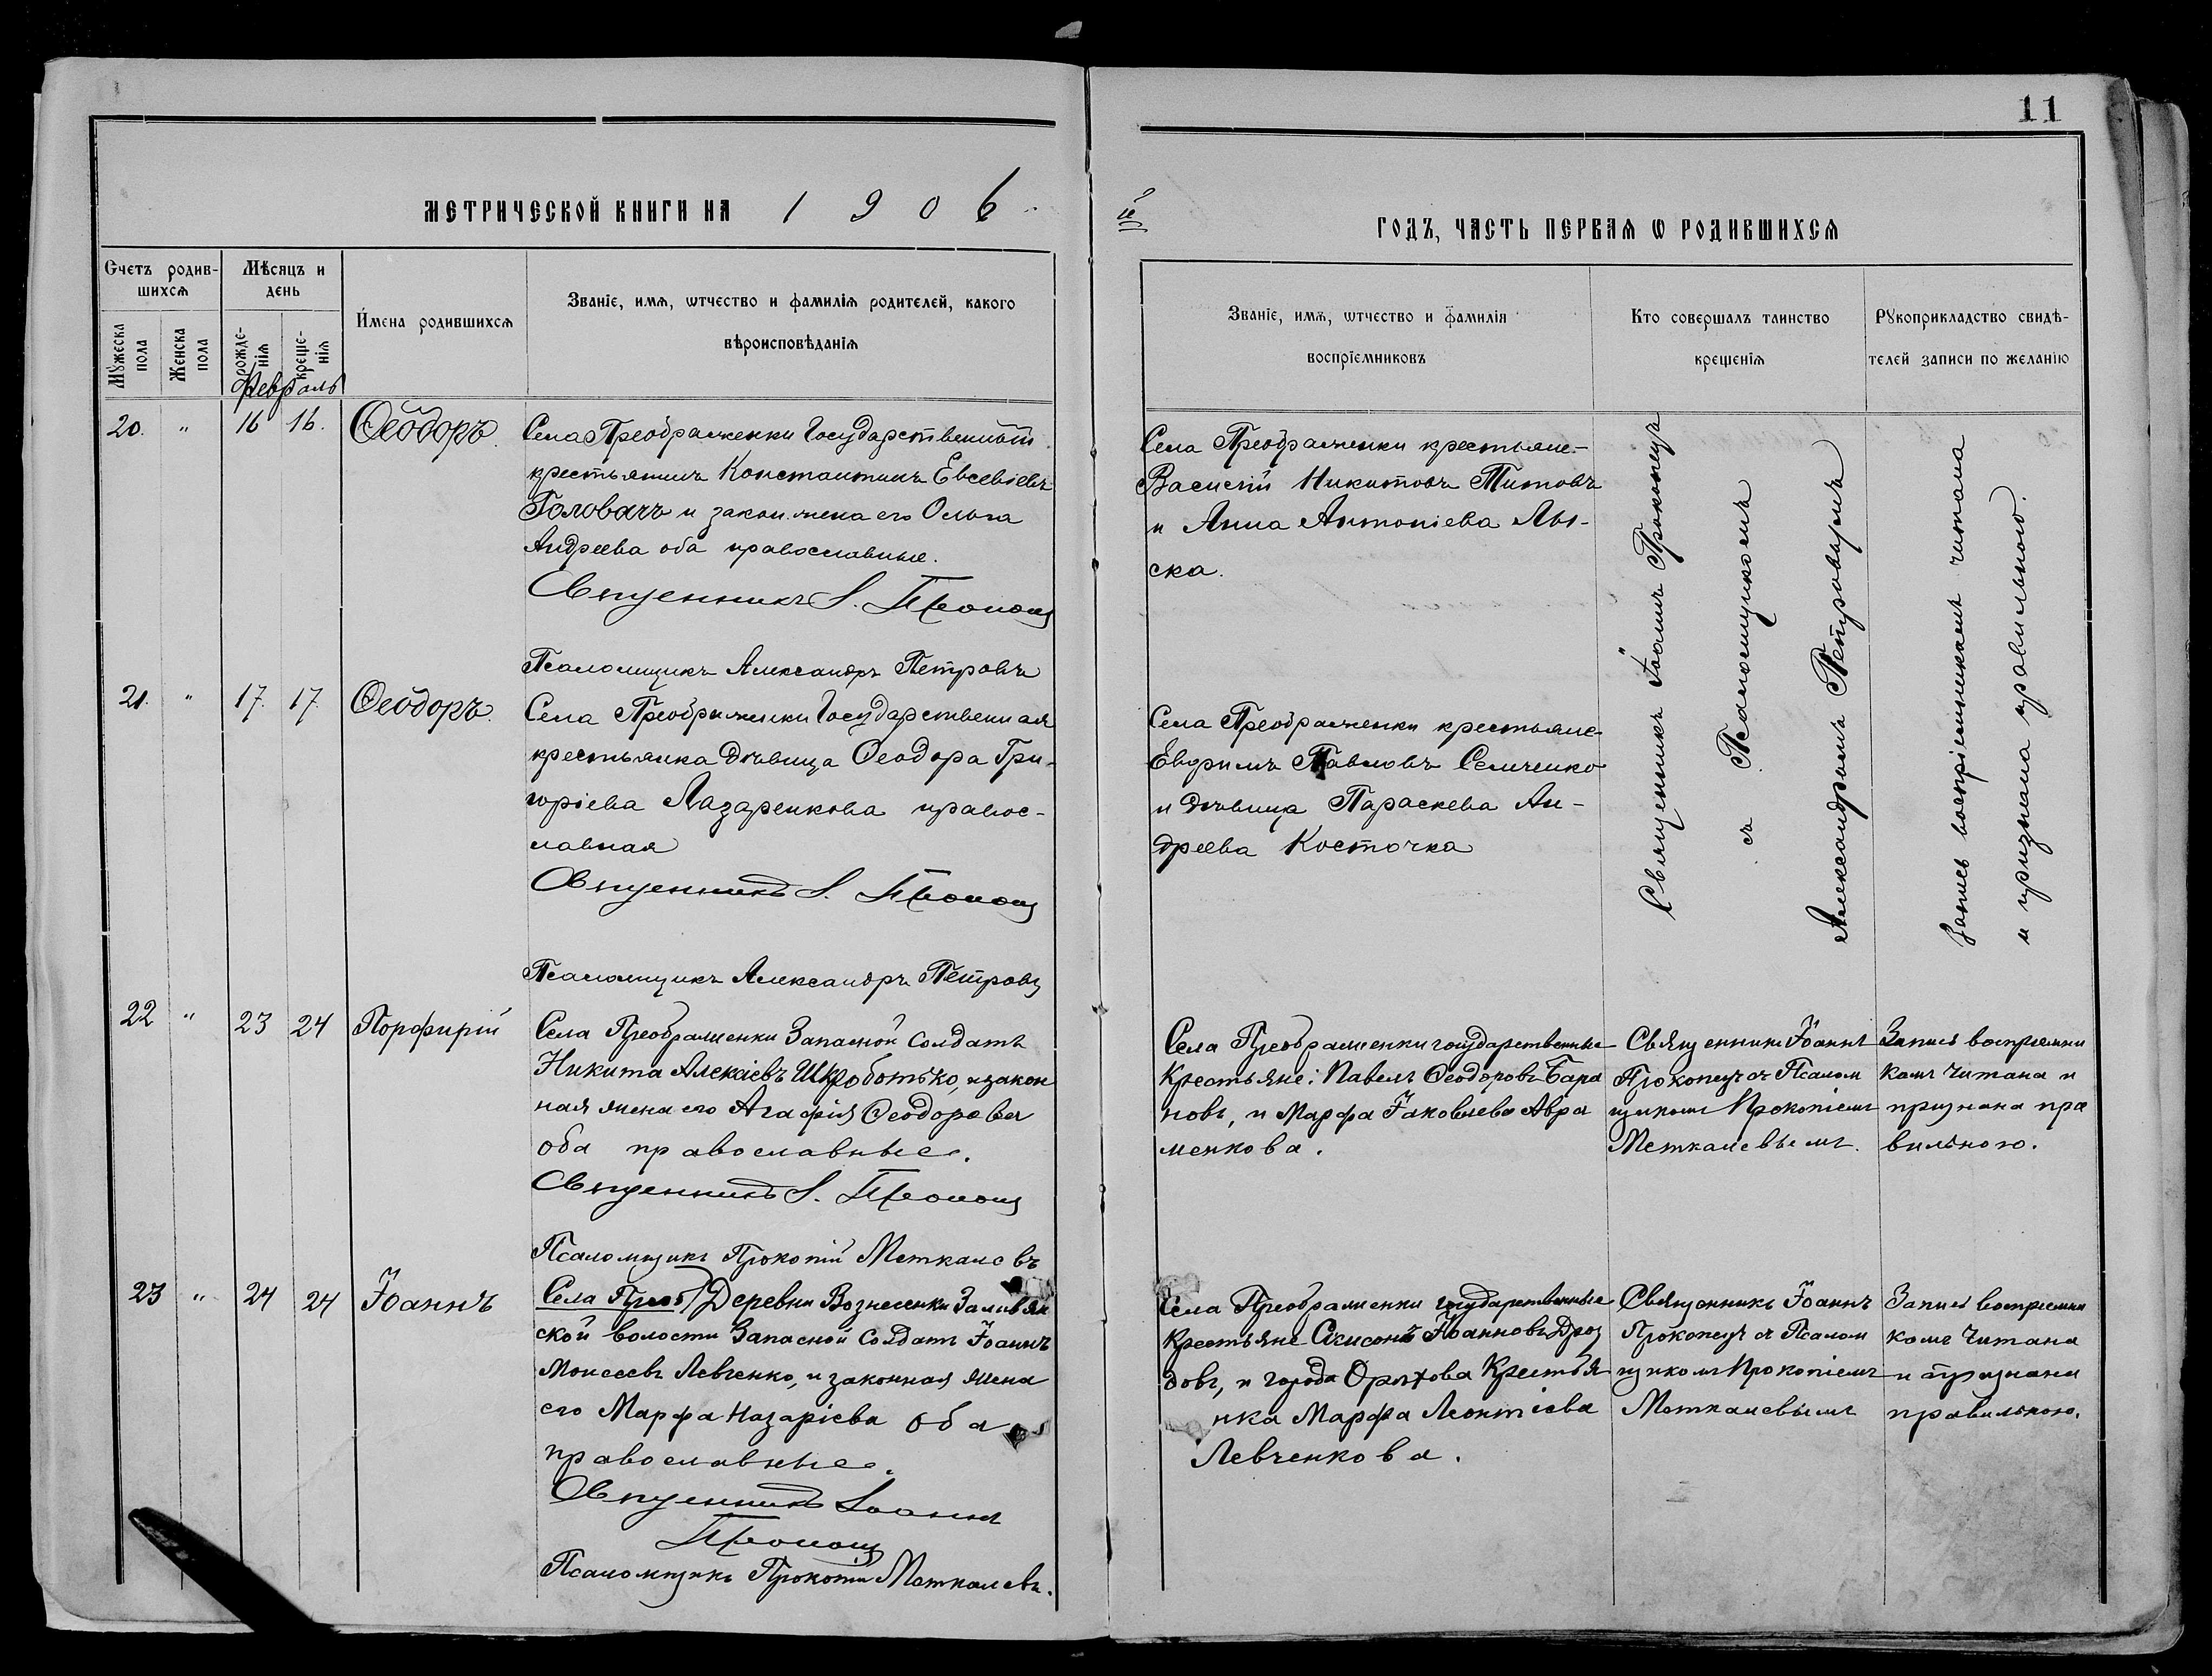 11
МЕТРИЧЕСКОЙ КНИГИ НА 1906
й
ГОДЪ, ЧАСТЬ ПЕРВАѦ Ѡ РОДИВШИХСѦ
Счетъ родив-
шихсѧ
Мѣсяцъ и
день
Мꙋжеска
пола
Женска
пола
рожде-
нїѧ
креще-
нїѧ
Имена родившихсѧ
Званїе, имѧ, ѡтчество и фамилїѧ родителей, какого
вѣроисповѣданїѧ
Званїе, имѧ, ѡтчество и фамилїѧ
воспрїемниковъ
Кто совершалъ таинство
крещенїѧ
Рꙋкоприкладство свидѣ-
телей записи по желанїю
Февраль
20. " 16 16. Ѳеодоръ.
Села Преображенки Государственный
крестьянинъ Константинъ Евсевіевъ
Головачъ и закон. жена его Ольга
Андреева оба православные.
Священникъ І. Прокопец
Псаломщикъ Александръ Петровъ
Села Преображенки крестьяне-
Василій Никитовъ Титовъ
и Анна Антоніева Лы-
ска.
Священникъ Іоаннъ Прокопецъ
съ Псаломщикомъ
Александромъ Петровымъ
Запись воспріемникамъ читана
и признана правильною.
21. " 17. 17. Ѳеодоръ.
Села Преображенки Государственная
крестьянка дѣвица Ѳеодора Гри-
горіева Лазаренкова правос-
лавная
Священникъ І. Прокопец
Псаломщикъ Александръ Петровъ
Села Преображенки крестьяне
Ефримъ Павловъ Семченко
и дѣвица Параскева Ан-
дреева Косточка
22 " 23 24 Порфирій
Села Преображенки Запасной Солдатъ
Никита Алексіевъ Шкроботько, и закон
ная жена его Агафія Ѳеодорова
оба православные.
Священникъ І. Прокопец
Псаломщикъ Прокопій Меткалевъ
Села Преображенки государственные
Крестьяне: Павелъ Ѳеодоровъ Бара
новъ, и Марфа Іаковлева Авра
менкова.
Священникъ Іоаннъ
Прокопецъ съ Псалом
щикомъ Прокопіемъ
Меткалевымъ.
Запись воспріемни
камъ читана и
признана пра
вильною.
23 " 24 24 Іоаннъ
Села Преоб / Деревни Вознесенки Заливян
ской волости Запасной Солдатъ Іоаннъ
Моисеевъ Левченко, и законная жена
его Марфа Назаріева оба
православные.
Священникъ Іоаннъ
Прокопец
Псаломщикъ Прокопій Меткалевъ.
Села Преображенки государственные
Крестьяне Самсонъ Іоанновъ Дроз
довъ, и города Орѣхова Крестья
нка Марфа Леонтіева
Левченкова.
Священникъ Іоаннъ
Прокопецъ съ Псалом
щикомъ Прокопіемъ
Меткалевымъ
Запись воспріемни
камъ Читана
и признана
правильною.